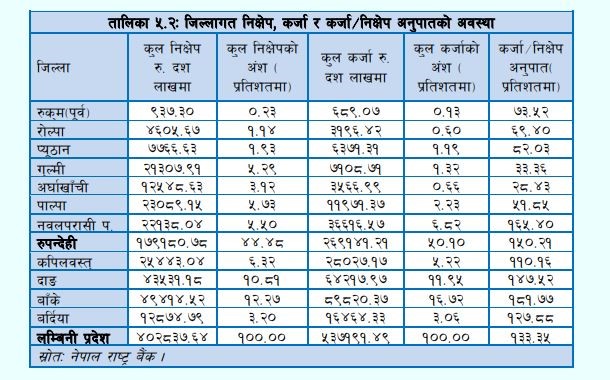 तालिका ५.२: जिल्लागत निक्षेप, कर्जा र कर्जा/निक्षेप अनुपातको अवस्था
जिल्ला कुल निक्षेप रु. दश लाखमा कुल निक्षेपको अंश ( प्रतिशतमा) कुल कर्जा रु. दश लाखमा कुल कर्जाको अंश ( प्रतिशतमा) कर्जा/निक्षेप अनुपात( प्रतिशतमा)
रुकुम(पूर्व) ९३७.३० ०.२३ ६८९.०७ ०.१३ ७३.५२
रोल्पा ४६०५.६७ १.१४ ३१९६.४२ ०.६० ६९.४०
प्यूठान ७७६६.६३ १.९३ ६३७१.३१ १.१९ ८२.०३
गुल्मी २१३०७.९१ ५.२९ ७१०८.७१ १.३२ ३३.३६
अर्घाखाँची १२५४८.६३ ३.१२ ३५६६.९९ ०.६६ २८.४३
पाल्पा २३०८९.१५ ५.७३ ११९७१.३७ २.२३ ५१.८५
नवलपरासी प. २२१३८.०४ ५.५० ३६६१६.५७ ६.८२ १६५.४०
रुपन्देही १७९१८०.७८ ४४.४८ २६९१४१.२१ ५०.१० १५०.२१
कपिलवस्तु २५४४३.०४ ६.३२ २८०२७.१७ ५.२२ ११०.१६
दाङ ४३५३१.१८ १०.८१ ६४२१७.९७ ११.९५ १४७.५२
बाँके ४९४१४.५२ १२.२७ ८९८२०.३७ १६.७२ १८१.७७
बर्दिया १२८७४.७९ ३.२० १६४६४.३३ ३.०६ १२७.८८
लुम्बिनी प्रदेश ४०२८३७.६४ १००.०० ५३७१९१.४९ १००.०० १३३.३५
स्रोत: नेपाल राष्ट्र बैंक ।